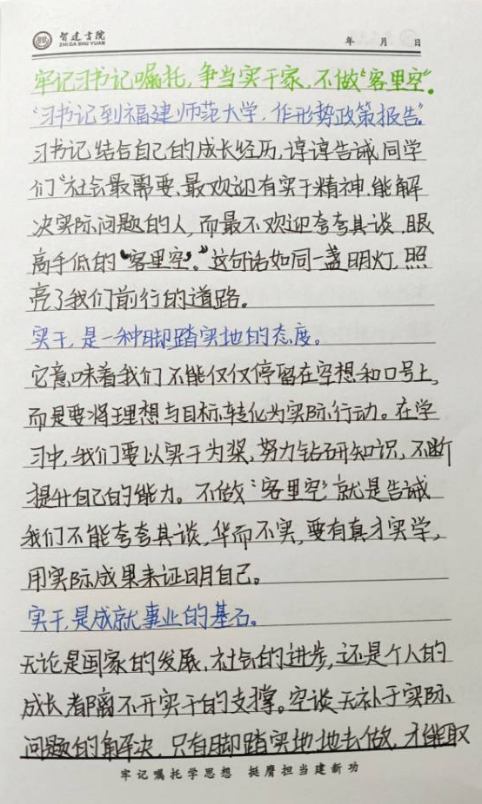 智建书院
ZHI DA SHU YUAN
年 月 日
牢记习书记嘱托，争当实干家，不做“客里空”。
“习书记到福建师范大学，作形势政策报告”
习书记结合自己的成长经历，谆谆告诫同学
们“社会最需要、最欢迎有实干精神、能解
决实际问题的人，而最不欢迎夸夸其谈、眼
高手低的“客里空”。”这句话如同一盏明灯，照
亮了我们前行的道路。
实干，是一种脚踏实地的态度。
它意味着我们不能仅仅停留在空想和口号上，
而是要将理想与目标转化为实际行动。在学
习中，我们要以实干为桨，努力钻研知识，不断
提升自己的能力。不做“客里空”就是告诫
我们不能夸夸其谈，华而不实，要有真才实学，
用实际成果来证明自己。
实干，是成就事业的基石。
无论是国家的发展、社会的进步，还是个人的
成长都离不开实干的支撑。空谈无补于实际
问题的解决，只有脚踏实地地去做，才能取
牢记嘱托学思想 挺膺担当建新功